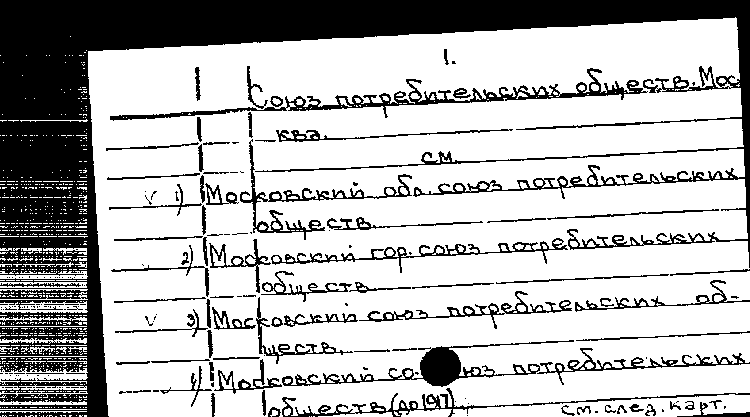 1.
Союз потребительских обществ. Мос
ква.
см.
v 1) Московский обл. союз потребительских
обществ.
2) Московский гор. союз потребительских
обществ
v 3) Московский союз потребительских об-
ществ.
4) Московский союз потребительских
обществ (до 1917).
см. след. карт.